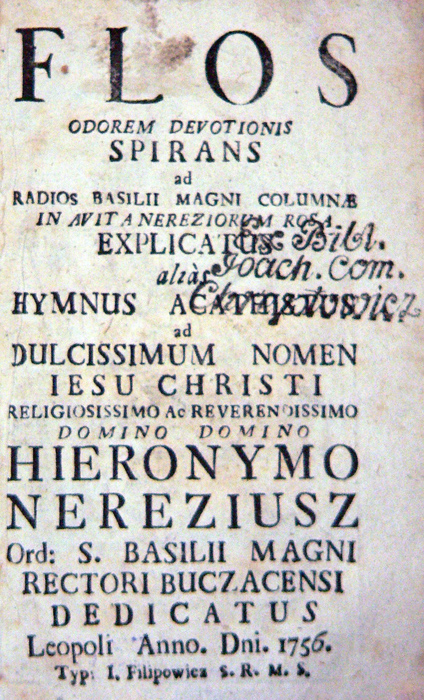 FLOS
ODOREM DEVOTIONIS
SPIRANS
ad
RADIOS BASILII MAGNI COLUMNÆ
IN AVITA NEREZIORUM ROSA
EXPLICATUS
Ex Bibl.
aliàs
Joach. Com.
HYMNUS ACATHISTUS
Chreptowicz
ad
DULCISSIMUM NOMEN
IESU CHRISTI
RELIGIOSISSIMO Ac REVERENDISSIMO
DOMINO DOMINO
HIERONYMO
NEREZIUSZ
Ord: S. BASILII MAGNI
RECTORI BUCZACENSI
DEDICATUS
Leopoli Anno. Dni. 1756.
Typ: I. Filipowicz S. R. M. S.